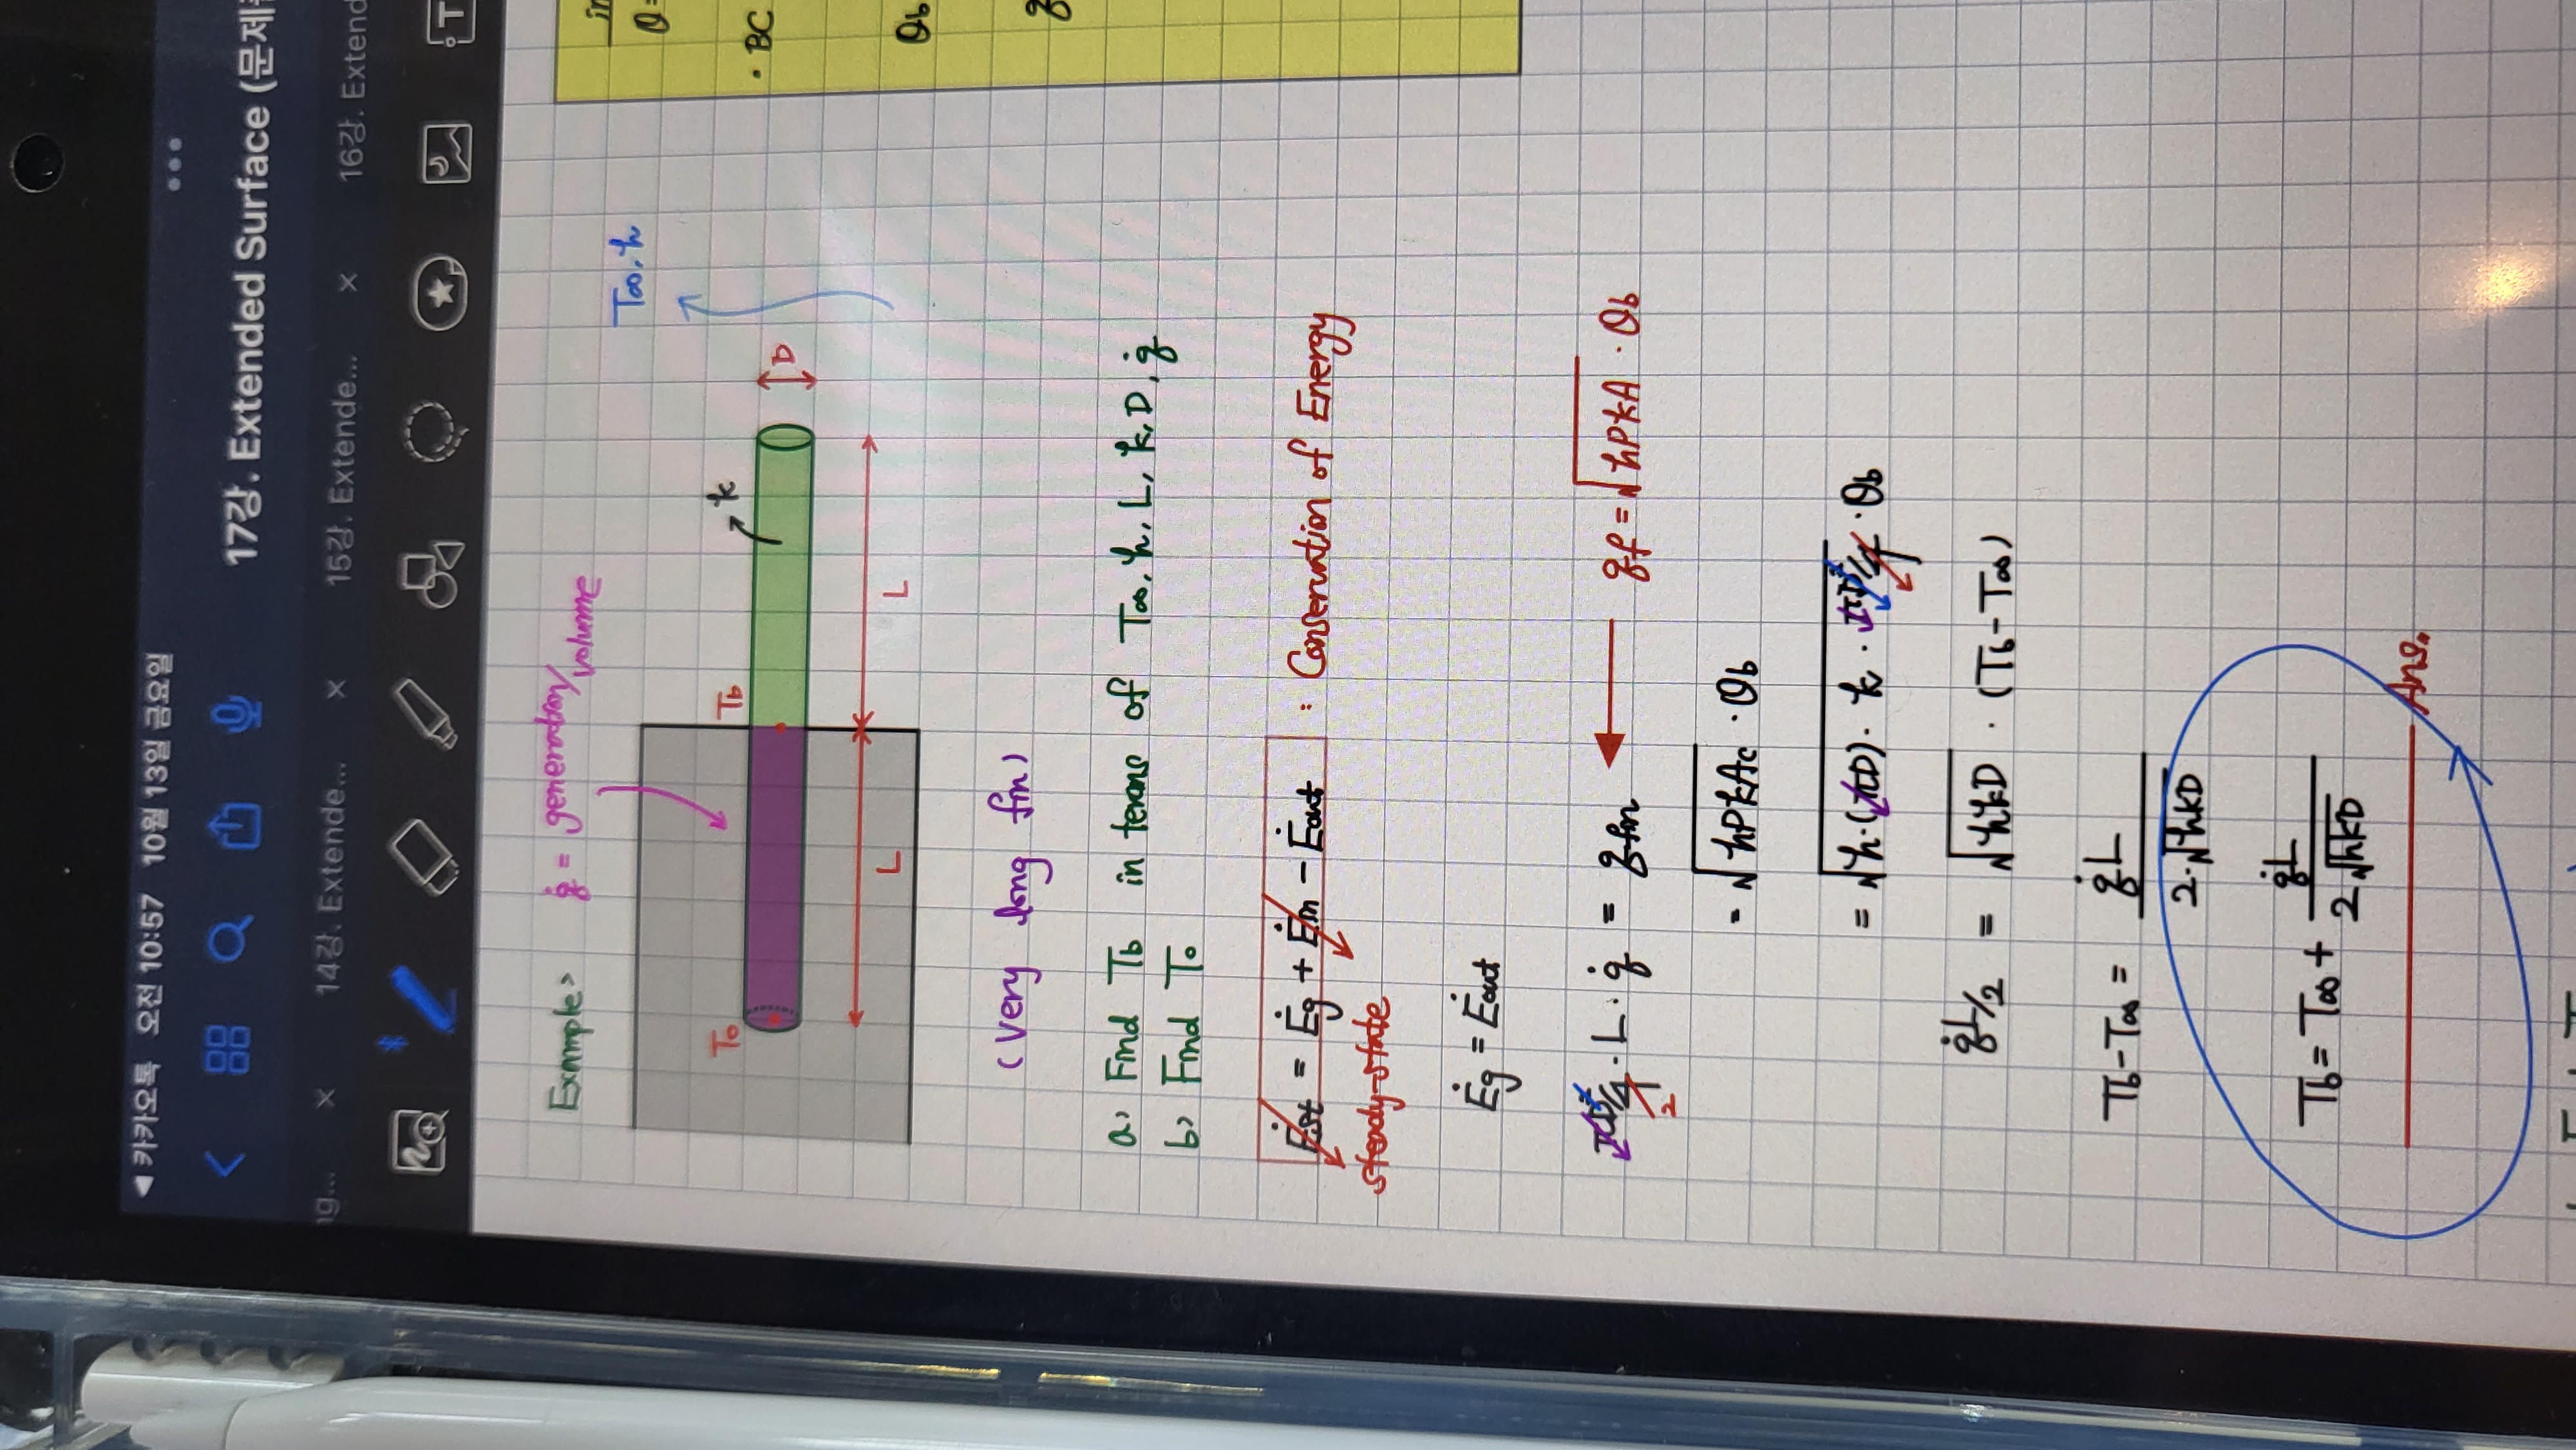 ◀ 카카오톡 오전 10:57 10월 13일 금요일
17강. Extended Surface (문제
14강. Extende... × 15강. Extende... × 16강. Extend
in
θ=
· BC
θb
Example>
q̇ = generation/volume
T∞, h
T0
Tb
k
D
L
L
(Very long fin)
a) Find Tb in terms of T∞, h, L, k, D, q̇
b) Find T0
Ėst = Ėg + Ėin - Ėout : Conservation of Energy
steady-state
Ėg = Ėout
πD²/4 · L · q̇ = qfin ← qf = √hPkA · θb
2
= √hPkAc · θb
= √h·(πD)· k · πD²/4 · θb
q̇L/2 = √hkD · (Tb - T∞)
Tb - T∞ = q̇L / 2·√hkD
Tb = T∞ + q̇L / 2√hkD
Ans.